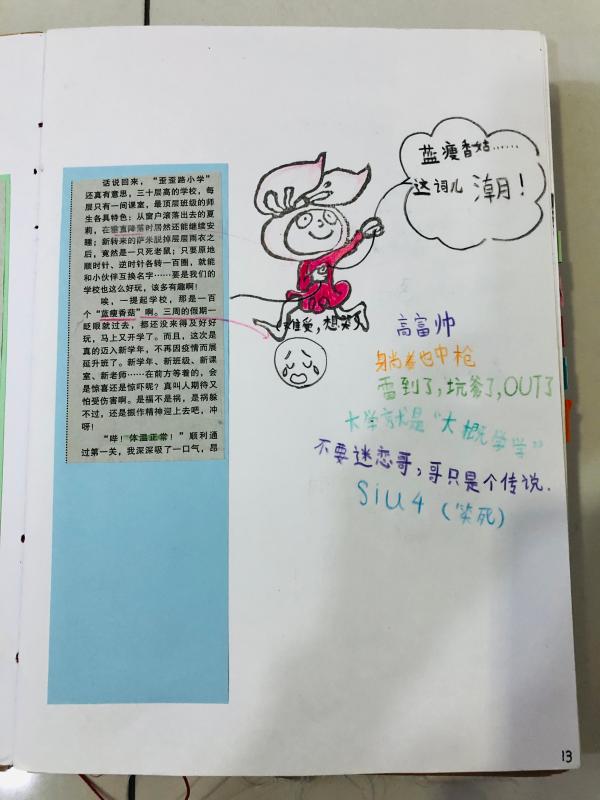 话说回来，“歪歪路小学”
还真有意思，三十层高的学校，每
层只有一间课室，最顶层班级的师
生各具特色：从窗户滚落出去的夏
莉，在垂直降落时居然还能继续安
睡；新转来的萨米脱掉层层雨衣之
后，竟然是一只死老鼠；只要原地
顺时针、逆时针各转一百圈，就能
和小伙伴互换名字……要是我们的
学校也这么好玩，该多有趣啊！
唉，一提起学校，那是一百
个“蓝瘦香菇”啊。三周的假期一
眨眼就过去，都还没来得及好好
玩，马上又开学了。而且，这次是
真的迈入新学年，不再因疫情而展
延升班了。新学年、新班级、新课
室、新老师……在前方等着的，会
是惊喜还是惊吓呢？真叫人期待又
怕受伤害啊。是福不是祸，是祸躲
不过，还是振作精神迎上去吧，冲
呀！
“哔！体温正常！”顺利通
过第一关，我深深吸了一口气，昂
蓝瘦香姑……
这词儿 潮！
难受，想哭
高富帅
身尚着也中枪
雷到了，坑爹了，OUT了
大学就是“大概学学”
不要迷恋哥，哥只是个传说.
SiU 4（笑死）
13